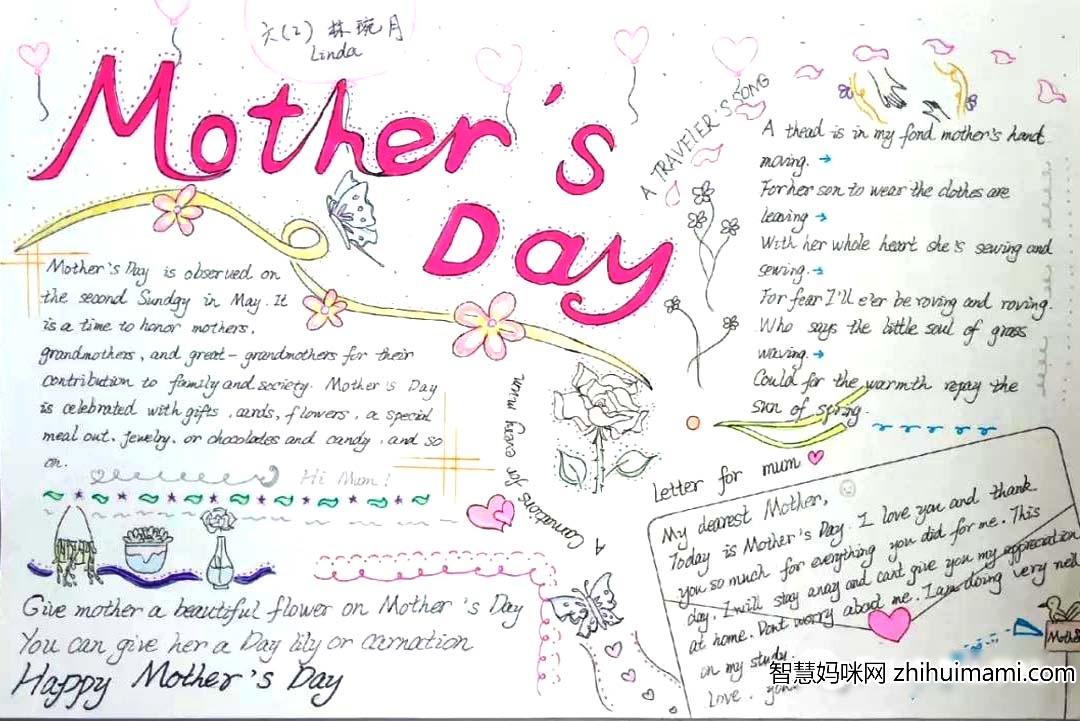 六(2) 林琬月
Linda
Mother's
Day
Mother's Day is observed on
the second Sunday in May. It
is a time to honor mothers,
grandmothers, and great-grandmothers for their
contribution to family and society. Mother's Day
is celebrated with gifts, cards, flowers, a special
meal out, jewelry, or chocolates and candy, and so
on.
Hi Mum!
A Carnations for every mum
Give mother a beautiful flower on Mother's Day
You can give her a Day lily or carnation
Happy Mother's Day
A TRAVELER'S SONG
A thead is in my fond mother's hand
moving.
For her son to wear the clothes are
leaving
With her whole heart she's sewing and
sewing.
For fear I'll e'er be roving and roving.
Who says the little soul of grass
waving.
Could for the warmth repay the
sun of spring.
Letter for mum
My dearest Mother,
Today is Mother's Day. I love you and thank
you so much for everything you did for me. This
day, I will stay away and can't give you my appreciation
at home. Don't worry about me. I am doing very well
on my study.
Love,
智慧妈咪网 zhihuimami.com